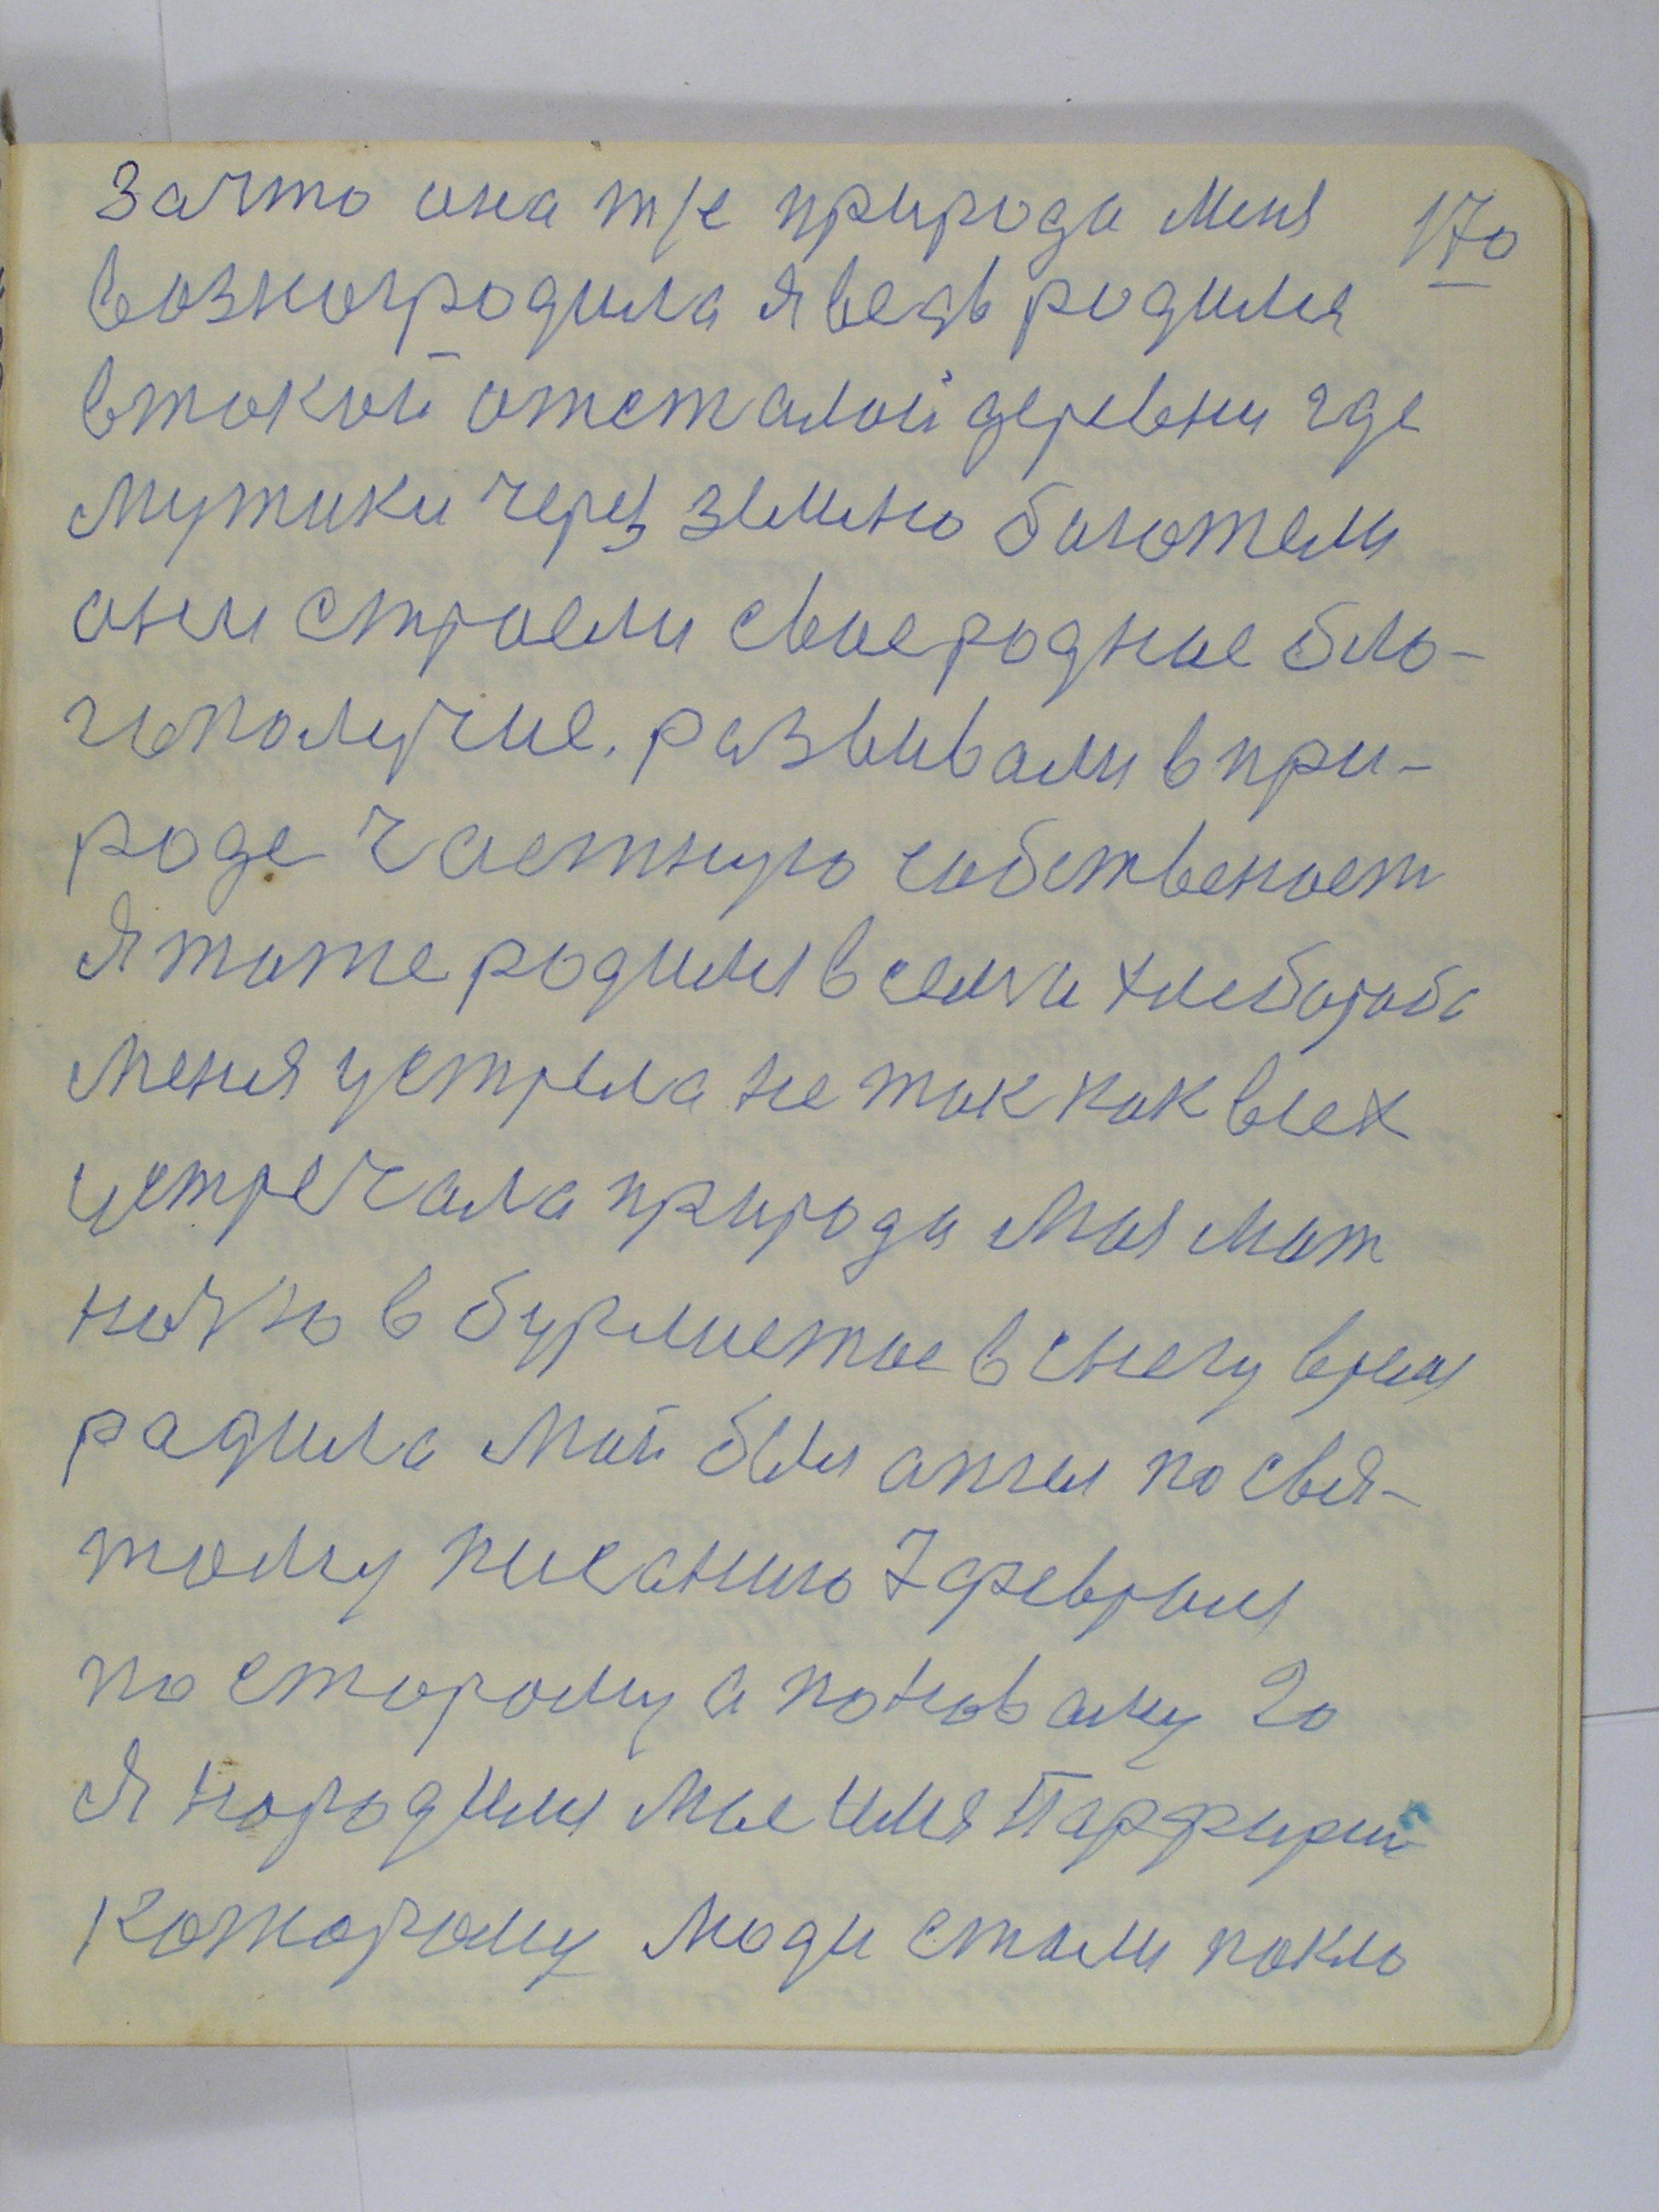 зачто она т/е природа меня 170
возногродила я ведь родился
втокой отсталой деревни где
мужики через землю богатели
они строели свое родное бла-
гополучие. развивали в при-
роде частную собственост
Я тоже родился в семьи хлебороба
меня устрела не так как всех
устречала природа Моя мат
ночью в бурлистое в снегу время
радила Мой был ангел по свя-
тому писанию 7 февраля
по старому а по новаму 20
Я народился мое имя Парфирий
Которому люди стали покло